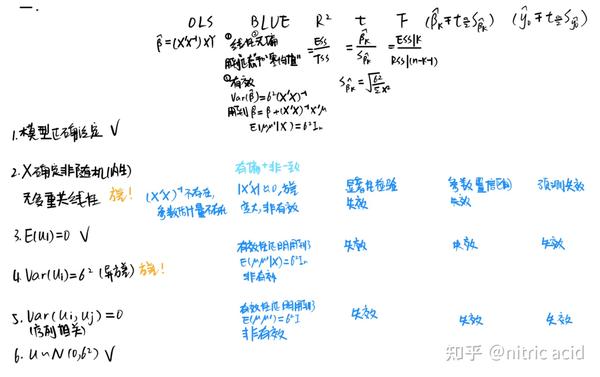 一.
OLS BLUE R² t F (β̂k ∓ t α/2 Sβ̂k) (ŷ0 ∓ t α/2 Sŷ0)
β̂=(X'X)⁻¹X'Y
①线性无偏 = ESS/TSS = β̂k/Sβ̂k = ESS/k / RSS/(n-k-1)
②有效
Var(β̂)=б²(X'X)⁻¹
用到β̂=β+(X'X)⁻¹X'μ
E(μμ'|X)=б²In
1.模型正确设定 V
2.X确定非随机(内生)
有偏+非一致
无多重共线性 方差!
(X'X)⁻¹不存在,
参数估计量不存在
|X'X|≈0,方差
变大,非有效
显著性检验
失效
参数置信区间
失效
预测失效
3.E(ui)=0 V
4.Var(ui)=б²(异方差) 方差!
有效性证明用到了
E(μμ'|X)=б²In
非有效
失效 失效 失效
5.Var(ui,uj)=0
(序列相关)
有效性证明用到了
E(μμ')=б²I
非有效
失效 失效 失效
6.u~N(0,б²) V
知乎 @nitric acid